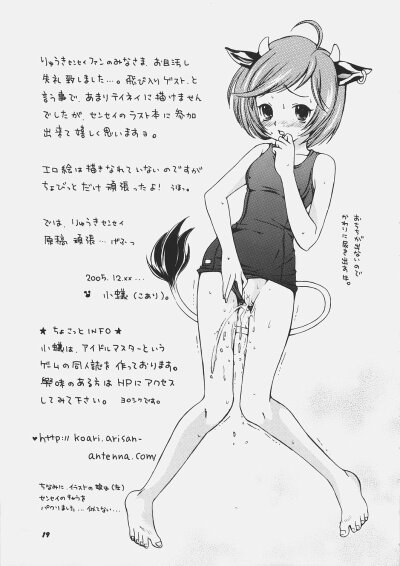 りゅうきセンセイファンのみなさま、お目汚し
失礼致しました…。飛び入りゲスト、と
言う事で、あまりテイネイに描けません
でしたが、センセイのラスト本に参加
出来て嬉しく思いますョ。
エロ絵は描きなれていないのですが
ちょびっとだけ頑張ったよ!
では、りゅうきセンセイ
原稿頑張…
2005.12.xx…
小蟻(こあり)。
★ちょこっとINFO★
小蟻は、アイドルマスターという
ゲームの同人誌を作っております。
興味のある方はHPにアクセス
してみて下さい。ヨロシクです。
♥http://koari.arisan-
antenna.com/
ちなみに、イラストの娘は(左)
センセイのきゅうを
パクリました…似てない…
19
おちちが出ないので
かわりに尿を出すのは。